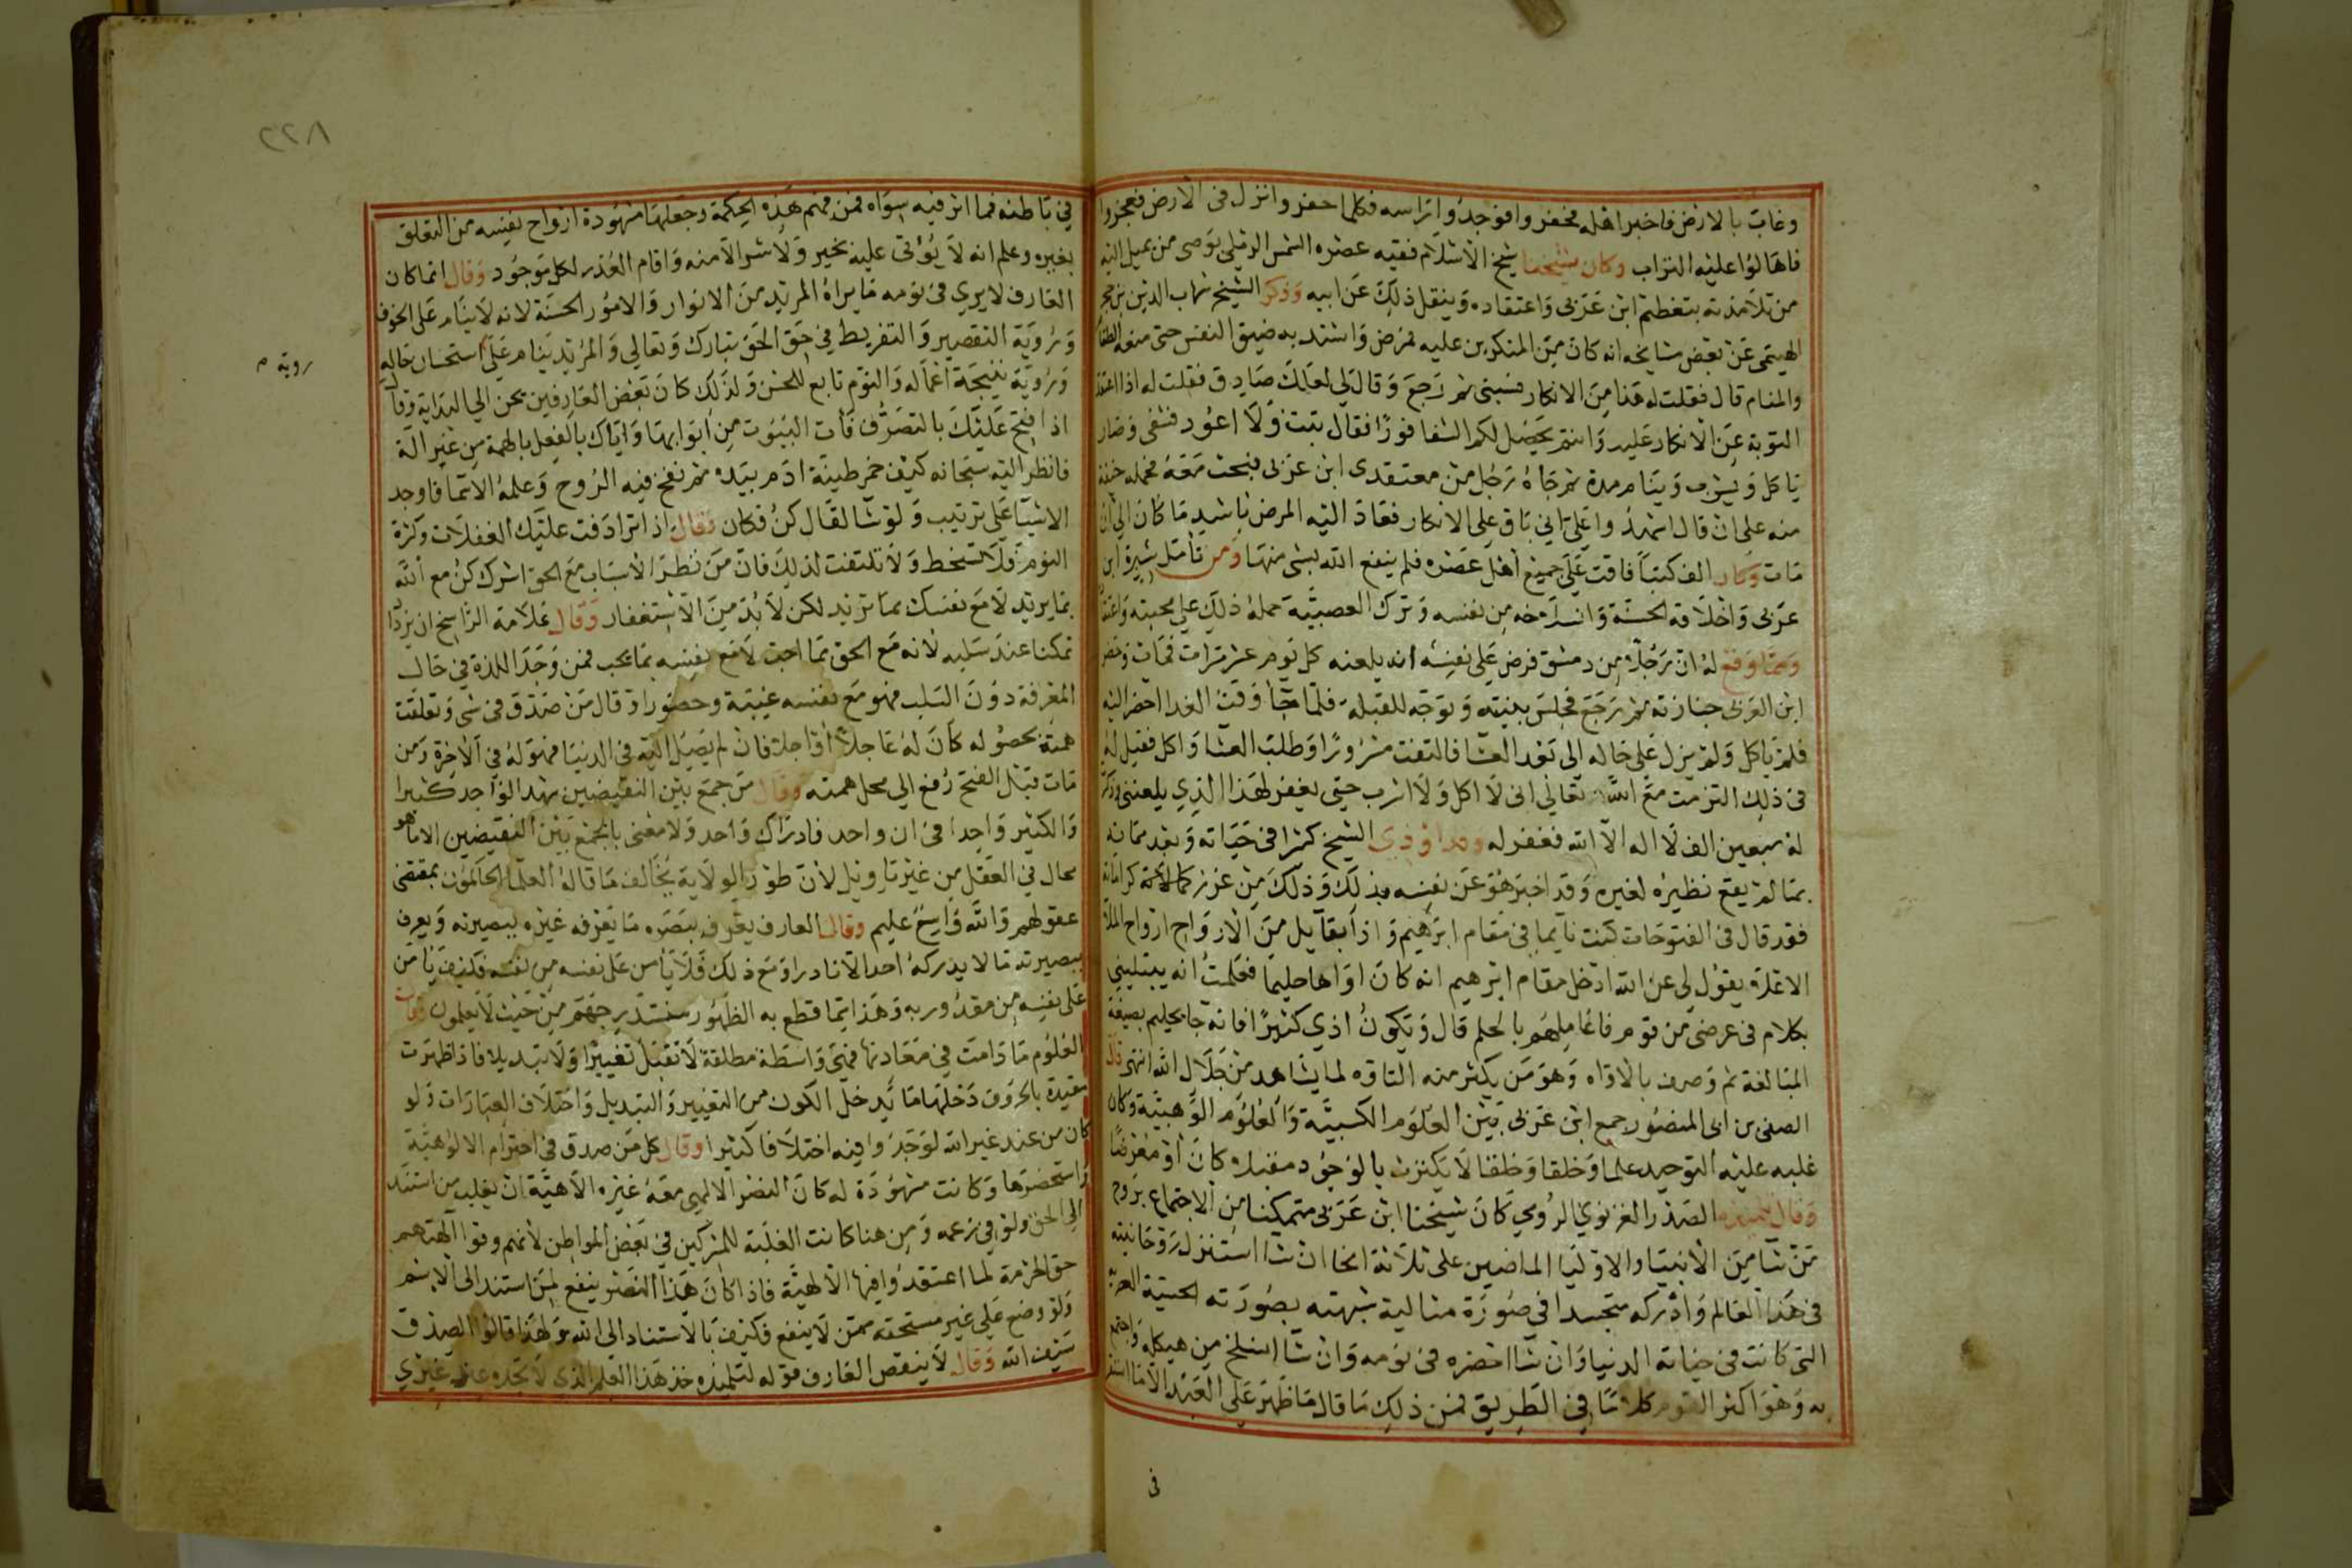 وغاب بالارض فاخبر اهله فحفروا فوجدوا راسه فكلما حفروا نزل في الارض فعجزوا
فاهالوا عليه التراب وكان شيخنا شيخ الاسلام فقيه عصره الشمس الرملي يوصي من يميل اليه
من تلامذته بتعظيم ابن عربي واعتقاده وينقل ذلك عن ابيه وذكر الشيخ شهاب الدين بن حجر
الهيتمي عن بعض مشايخه انه كان من المنكرين عليه فمرض واشتد به ضيق النفس حتى منعه الطعام
والمنام قال فقلت له هذا من الانكار فسبني ثم رجع وقال لي لعلك صادق فقلت له اذا اعتقد
التوبة عن الانكار عليه وانتم يحصل لكم الشفا فورا فقال تبت ولا اعود فشفي وصار
ياكل ويشرب وينام مدة ثم جاه رجل من معتقدي ابن عربي فبحث معه فحمله حنقه
منه على ان قال اشهدوا علي اني باق على الانكار فعاد اليه المرض باشد ما كان الى ان
مات وكان الف كتبا فاقت على جميع اهل عصره فلم ينفع الله بشي منها ومن تامل سيرة ابن
عربي واخلاقه الحسنة وانسلاخه من نفسه وترك العصبية حمله ذلك على محبته واعتقاده
ومما وقع له ان رجلا من دمشق فرض على نفسه انه يلعنه كل يوم عشر مرات فمات وحضر
ابن العربي جنازته ثم رجع فجلس ببيته وتوجه للقبلة فلما جا وقت الغدا احضر اليه
فلم ياكل ولم يزل على حاله الى بعد العشا فالتفت مسرورا وطلب العشا واكل فقيل له
في ذلك فقال التزمت مع الله تعالى اني لا اكل ولا اشرب حتى يغفر لهذا الذي يلعنني وذكرت
له سبعين الف لا اله الا الله فغفر له وقد اوذي الشيخ كثيرا في حياته وبعد مماته
بما لم يقع نظيره لغيره وقد اخبر هو عن نفسه بذلك وذلك من غرر كراماته
فقد قال في الفتوحات كنت نايما في مقام ابرهيم واذا بقايل من الارواح ارواح الملا
الاعلا يقول لي عن الله ادخل مقام ابرهيم انه كان اواها حليما فعلمت انه يبتليني
بكلام في عرضي من قوم فاعاملهم بالحلم قال ويكون اذى كثيرا فانه جا بحليم بصيغة
المبالغة ثم وصف بالاواه وهو من يكثر منه التاوه لما يشاهد من جلال الله انتهى قال
الصفي بن ابي المنصور جمع ابن عربي بين العلوم الكسبية والعلوم الوهبية وكان
غلب عليه التوحيد علما وخلقا وخلقا لا يكترث بالوجود مقبلا كان او معرضا
وقال تلميذه الصدر الغزنوي الرومي كان شيخنا ابن عربي متمكنا من الاجتماع بروح
من شا من الانبيا والاوليا الماضين على ثلاثة انحا ان شا استنزل روحانيته
في هذا العالم وادركه متجسدا في صورة مثالية شبهته بصورته الحسية
التي كانت في حياته الدنيا وان شا احضره في نومه وان شا انسلخ من هيكله واجتمع
به وهو اكثر القوم كلاما في الطريق فمن ذلك ما قال ما ظهر على العبد الا ما استقر
في
٢٢٨
في باطنه فما اثر فيه سواه فمن فهم هذه الحكمة وجعلها مشهودة اراح نفسه من التعلق
بغيره وعلم انه لا يؤتى عليه بخير ولا شر الا منه واقام العذر لكل موجود وقال انما كان
العارف لا يرى في نومه ما يراه المريد من الانوار والامور الحسنة لانه لا ينام على الخوف
ورؤية التقصير والتفريط في حق الحق تبارك وتعالي والمريد ينام على استحسان حاله
روية م
ورؤية نتيجة اعماله والنوم تابع للحس ولذلك كان بعض العارفين يحن الي البداية وقال
اذا فتح عليك بالتصرف فات البيوت من ابوابها واياك بالفعل بالهمة من غير الة
فانظر اليه سبحانه كيف خمر طينة ادم بيده ثم نفخ فيه الروح وعلمه الاسما فاوجد
الاشيا على ترتيب ولو شا لقال كن فكان وقال اذا ترادفت عليك الغفلات وكثرة
النوم فلا تسخط ولا تلتفت لذلك فان من نظر الاسباب مع الحق اشرك كن مع الله
بما يريد لا مع نفسك بما تريد لكن لا بد من الاستغفار وقال علامة الراسخ ان يزداد
تمكنا عند سلبه لانه مع الحق بما احب لا مع نفسه بما يحب فمن وجد اللذة في حال
المعرفة دون السلب فهو مع نفسه غيبة وحضورا وقال من صدق في شي وتعلقت
همته بحصوله كان له عاجلا او اجلا فان لم يصل اليه في الدنيا فهو له في الاخرة ومن
مات قبل الفتح رفع الي محل همته وقال من جمع بين النقيضين شهد الواحد كثيرا
والكثير واحدا في ان واحد فادراك واحد ولا معنى بالجمع بين النقيضين الا ما هو
محال في العقل من غير تاويل لان طور الولاية يخالف ما قاله العلما الحاكمون بمقتضى
عقولهم والله واسع عليم وقال العارف يعرف ببصره ما يعرفه غيره ببصيرته ويعرف
ببصيرته ما لا يدركه احد الا نادرا ومع ذلك فلا يامن على نفسه من نفسه فكيف يامن
على نفسه من مقدور ربه وهذا مما قطع به الظهور سنستدرجهم من حيث لا يعلمون وقال
العلوم ما دامت في معادنها فهي واسطة مطلقة لا تقبل تغييرا ولا تبديلا فاذا ظهرت
مقيدة بالحروف دخلها ما يدخل الكون من التغيير والتبديل واختلاف العبارات ولو
كان من عند غير الله لوجدوا فيه اختلافا كثيرا وقال كل من صدق في احترام الالوهية
واستحضرها وكانت مشهودة له كان النصر الالهي معه غيره الاهية ان يغلب من استند
الي الحق ولو في زعمه ومن هنا كانت الغلبة للمشركين في بعض المواطن لانهم وفوا الهتهم
حق الحرمة لما اعتقدوا فيها الالهية فاذا كان هذا النصر ينفع لمن استند الى الاسم
ولو وضع على غير مستحقه ممن لا ينفع فكيف بالاستناد الى الله ولهذا قالوا الصدق
سيف الله وقال لا ينقص العارف قوله لتلميذه خذ هذا العلم الذي لا تجده عند غيري